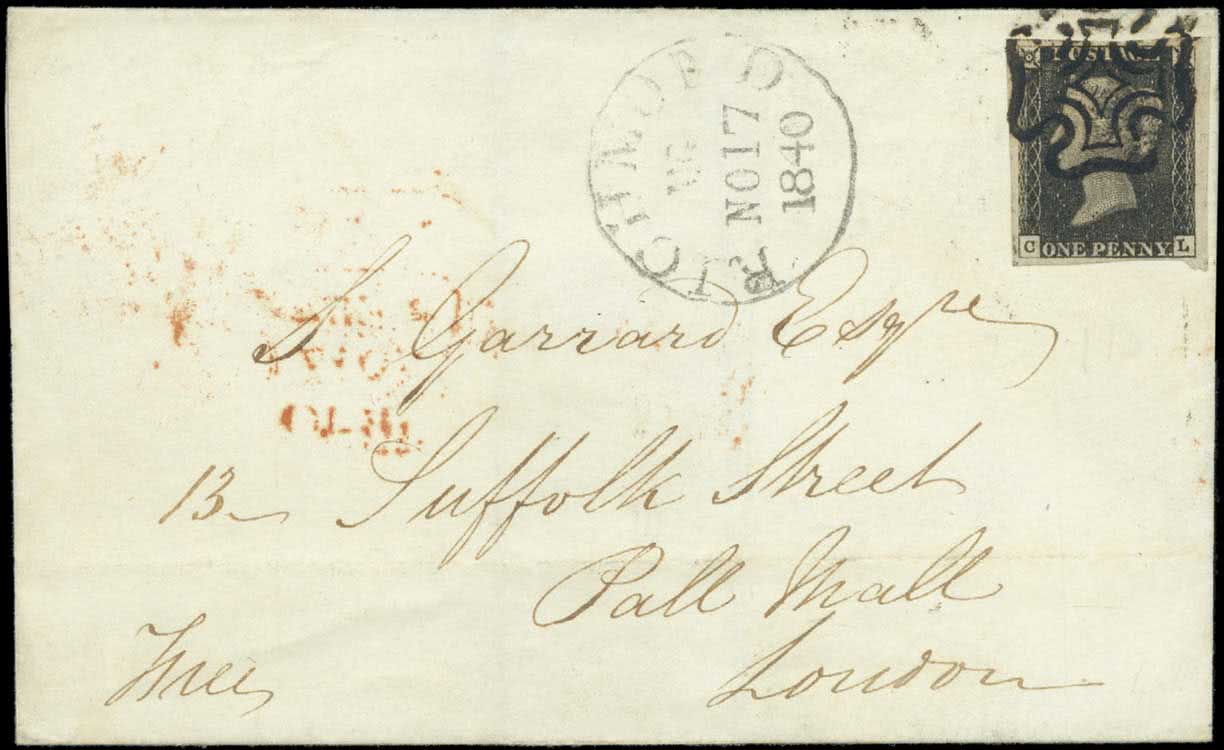 RICHMOND
NO 17
1840
POSTAGE
C ONE PENNY. L
S Garrard Esqre
13 Suffolk Street
Pall Mall
London